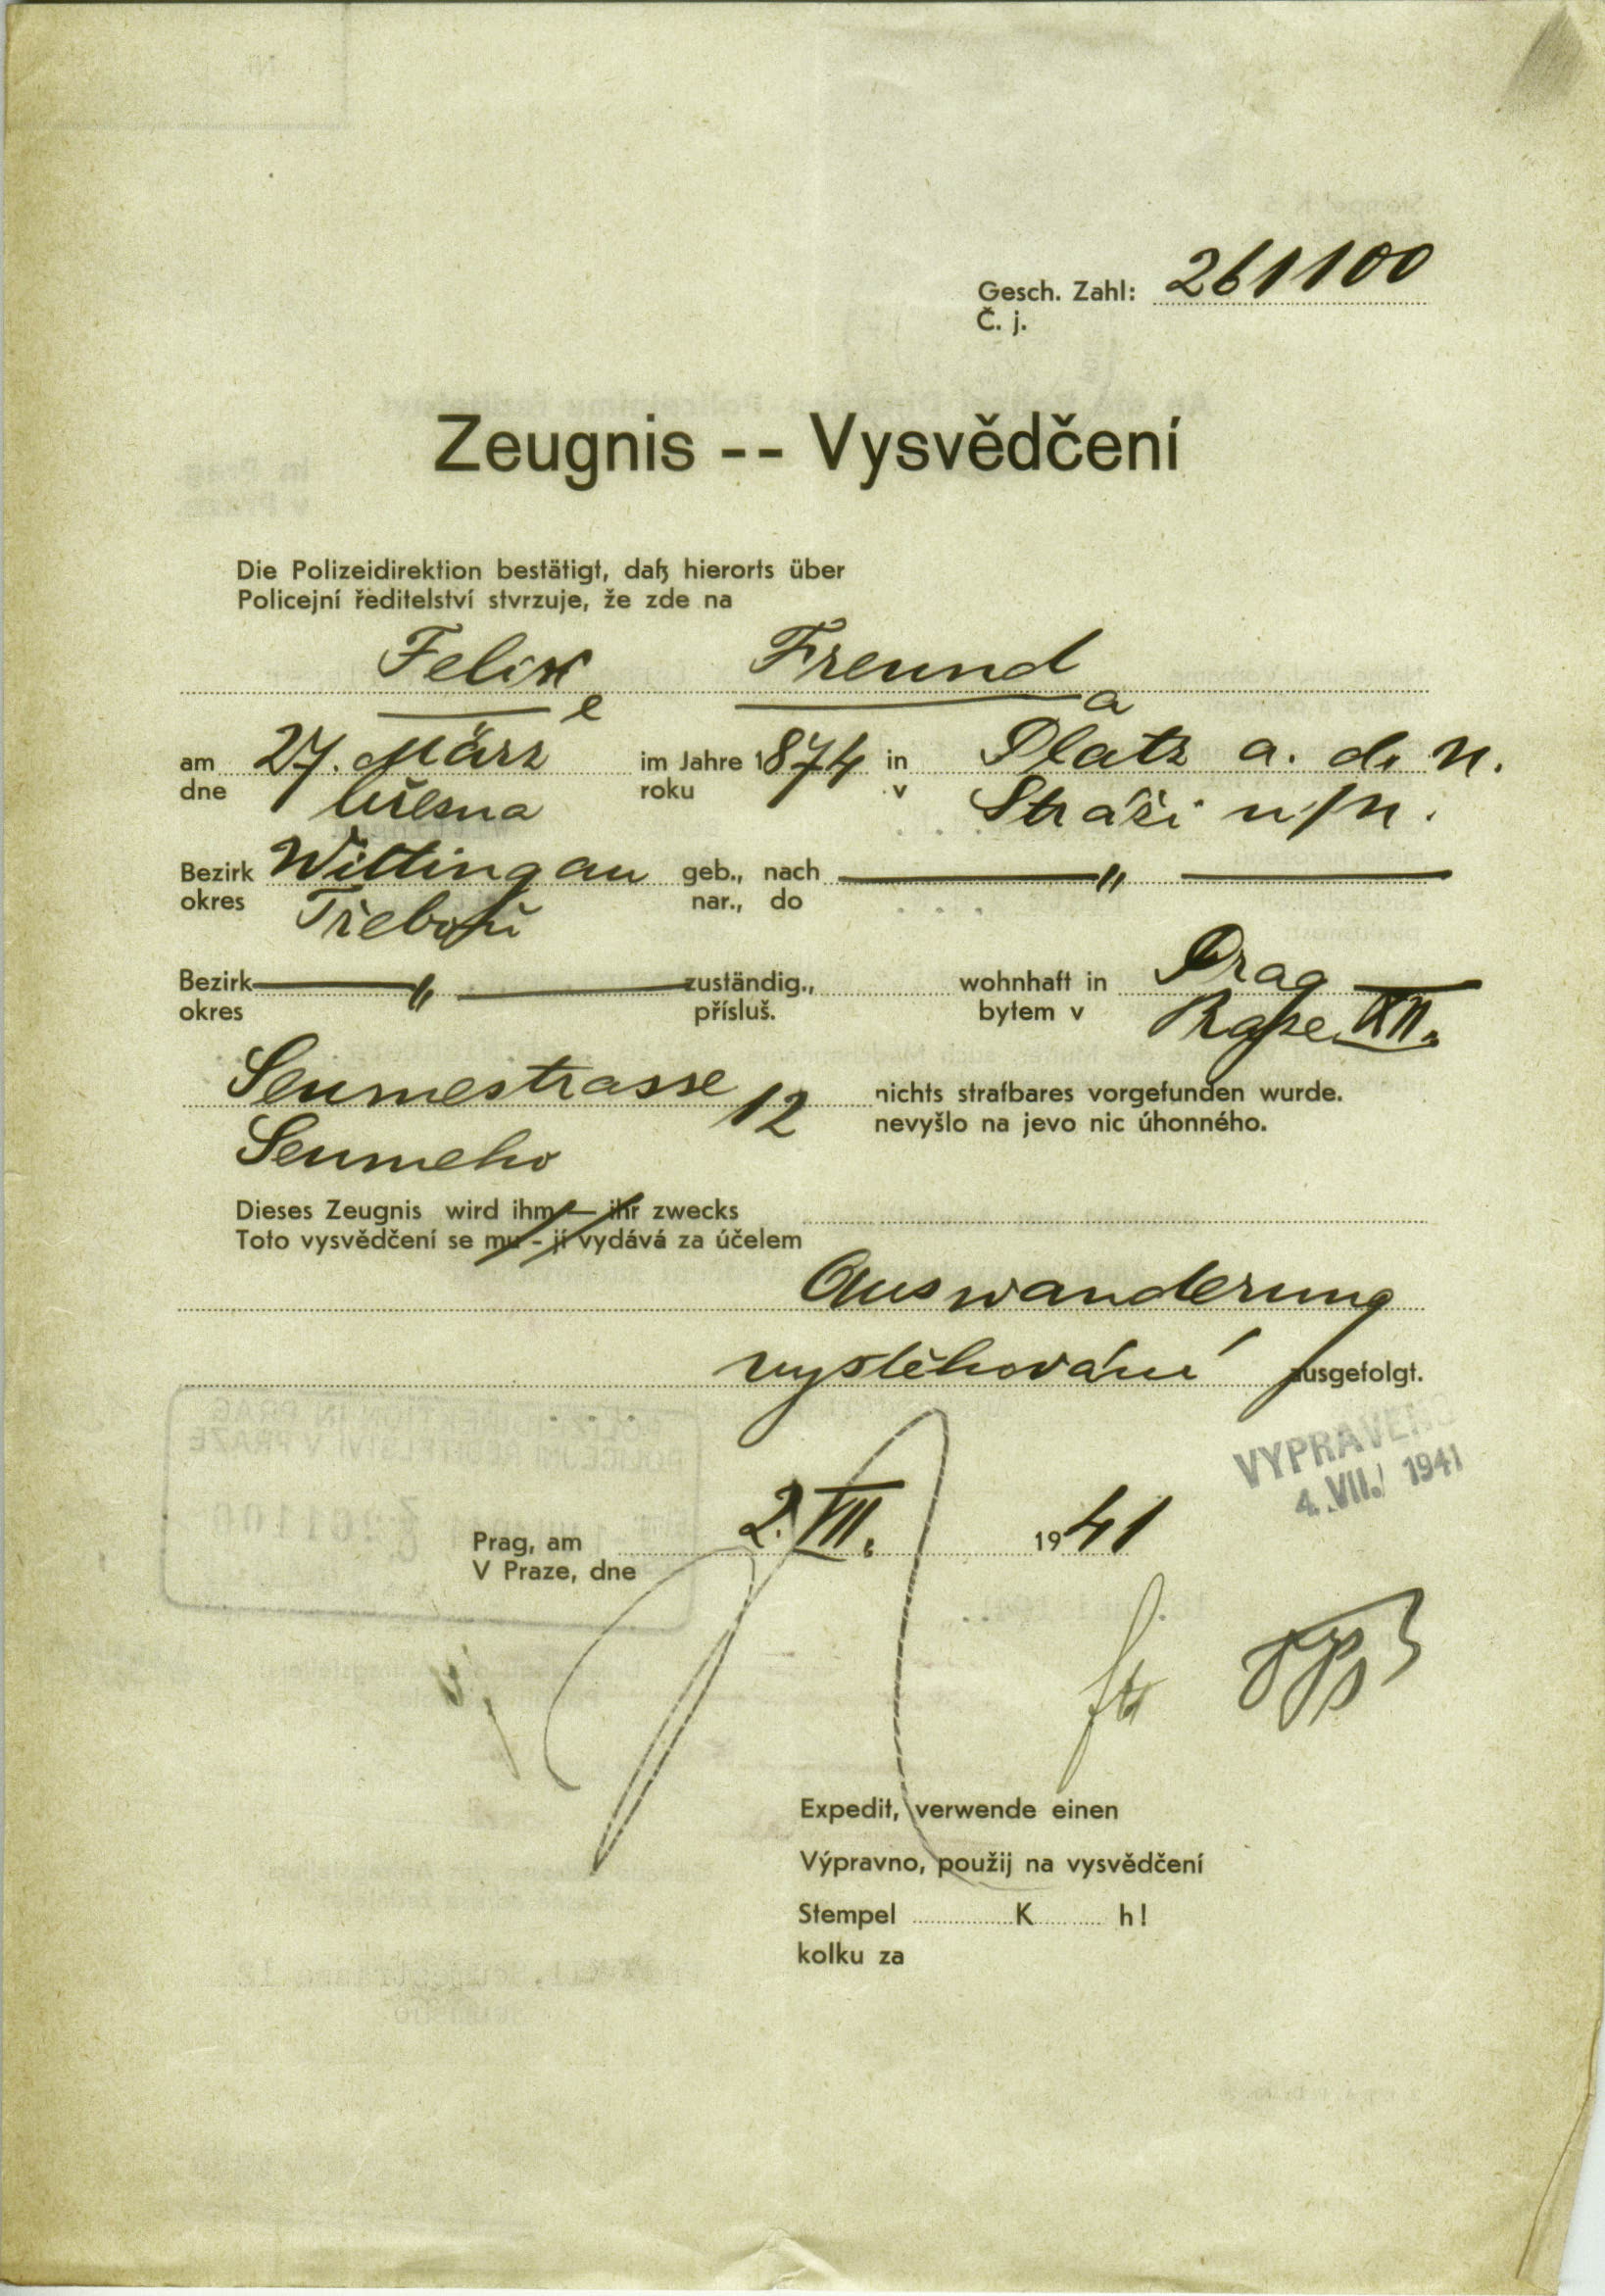 Gesch. Zahl: 261100
Č. j.
Zeugnis -- Vysvědčení
Die Polizeidirektion bestätigt, daß hierorts über
Policejní ředitelství stvrzuje, že zde na
Felix Freund
e a
am 27. März im Jahre 1874 in Platz a. d. N.
dne března roku v Stráži n/N.
Bezirk Wittingau geb., nach — " —
okres Třeboň nar., do
Bezirk — " — zuständig., wohnhaft in Prag
okres přísluš. bytem v Praze XII.
Seumestrasse 12 nichts strafbares vorgefunden wurde.
Seumeho nevyšlo na jevo nic úhonného.
Dieses Zeugnis wird ihm — ihr zwecks
Toto vysvědčení se mu - jí vydává za účelem
Auswanderung
vystěhování ausgefolgt.
VYPRAVENO
4. VII. 1941
Prag, am 2. VII. 1941
V Praze, dne
Expedit, verwende einen
Výpravno, použij na vysvědčení
Stempel K h!
kolku za